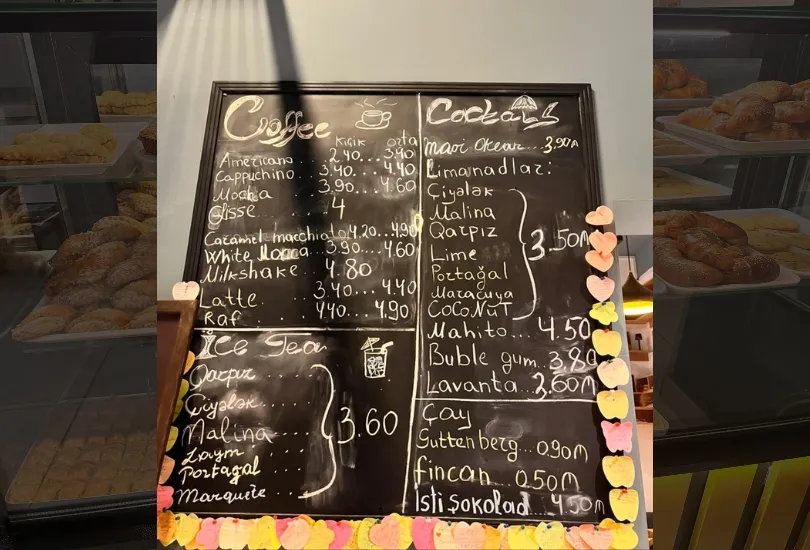 Coffee
kiçik orta
Americano 2.40...3.40
Cappuchino 3.40...4.40
Mocha 3.90...4.60
Glisse 4
Caramel macchiato 4.20...4.90
White Mocca 3.90...4.60
Milkshake 4.80
Latte 3.40...4.40
Raf 4.40...4.90
İce Tea
Qarpız
Çiyələk
Malina
Laym
Portağal
Marquete
3.60
Coctails
Mavi Okean...3.90m
Limonadlar:
Çiyələk
Malina
Qarpız
Lime
Portağal
Maracuya
CoCoNuT
3.50m
Mahito...4.50
Buble gum...3.80
Lavanta...3.60m
Çay
Guttenberg...0.90m
fincan...0.50m
İsti Şokolad...4.50m